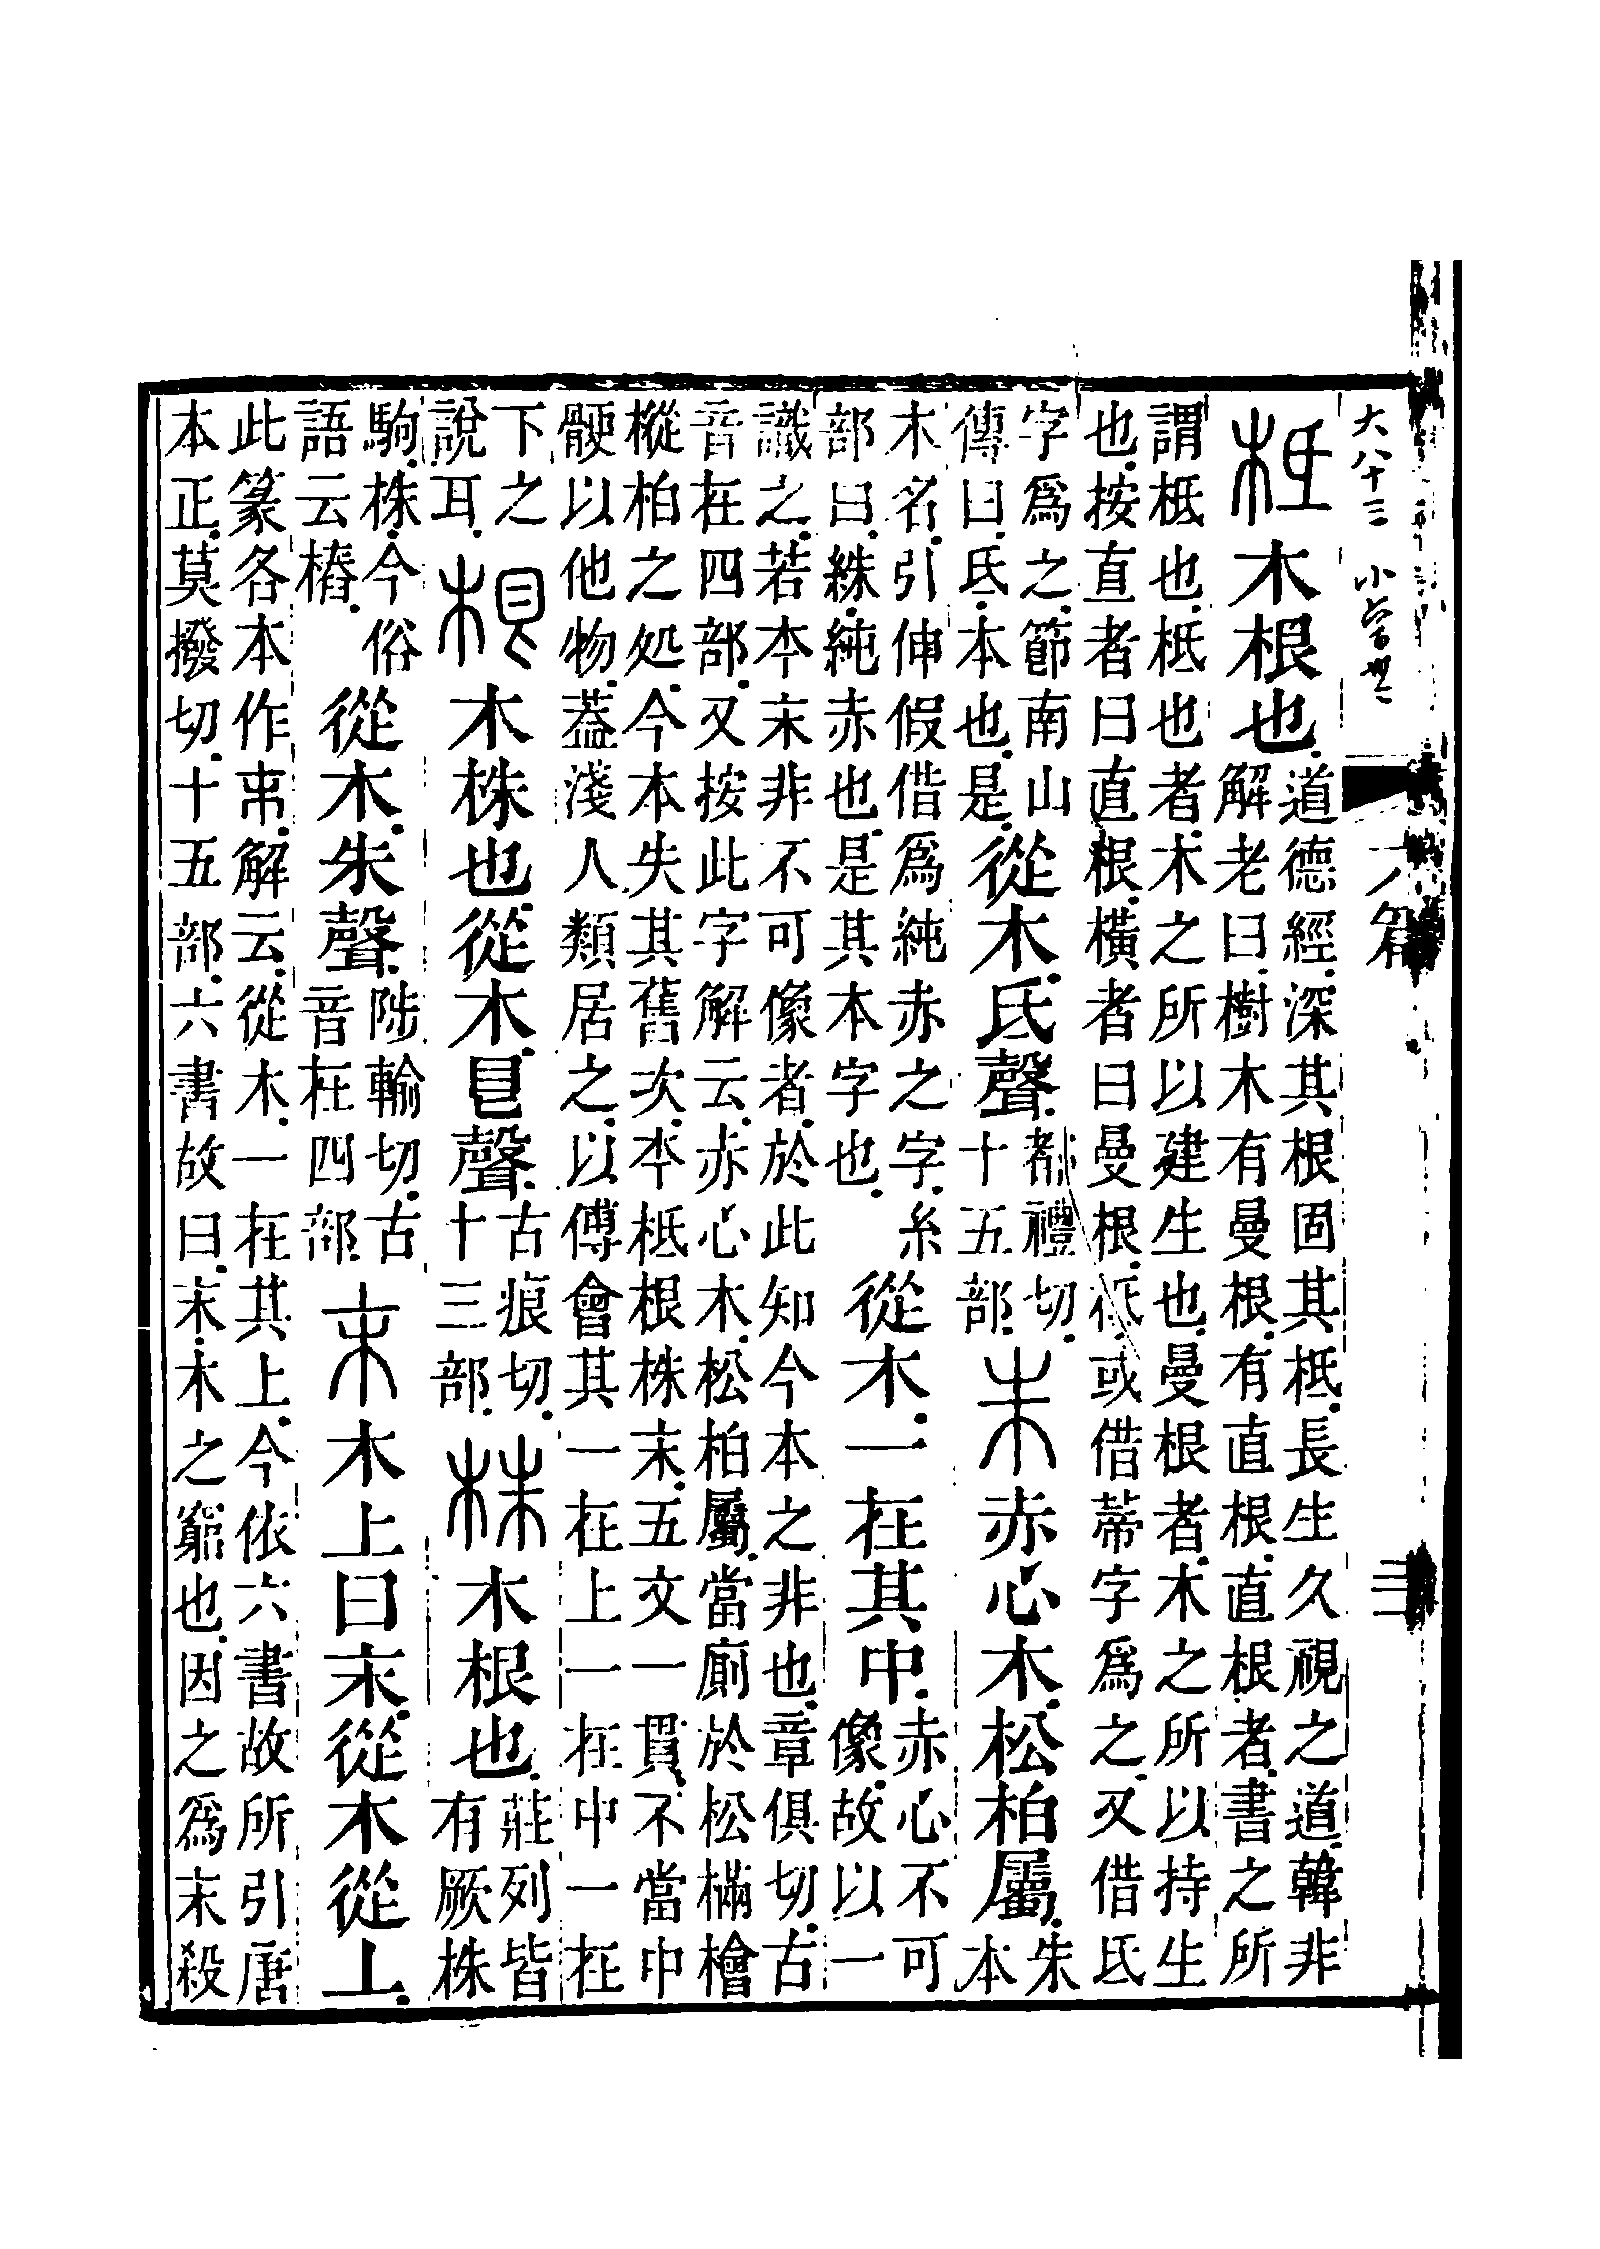 大八十三
六篇
三
柢木根也。道德經。深其根固其柢。長生久視之道。韓非
解老曰。樹木有曼根。有直根。直根者。書之所
謂柢也。柢也者。木之所以建生也。曼根者。木之所以持生
也。按直者曰直根。橫者曰曼根。柢或借蒂字爲之。又借氐
字爲之。節南山
傳曰。氐。本也。是。
從木氐聲。都禮切。
十五部。
朱赤心木。松柏屬。朱
本
木名。引伸假借爲純赤之字。糸
部曰。絑。純赤也。是其本字也。
從木。一在其中。赤心不可
像。故以一
識之。若本末非不可像者。於此知今本之非也。章俱切。古
音在四部。又按此字解云。赤心木。松柏屬。當廁於松樠檜
樅柏之処。今本失其舊次。本柢根株末。五文一貫。不當中
骾以他物。蓋淺人類居之。以傅會其一在上一在中一在
下之
說耳。
根木株也。從木㫐聲。古痕切。
十三部。
株木根也。莊列皆
有厥株
駒。株。今俗
語云樁。
從木朱聲。陟輸切。古
音在四部。
末木上曰末。從木從上。
此篆各本作末。解云。從木。一在其上。今依六書故所引唐
本正。莫撥切。十五部。六書故曰。末。木之窮也。因之爲末殺